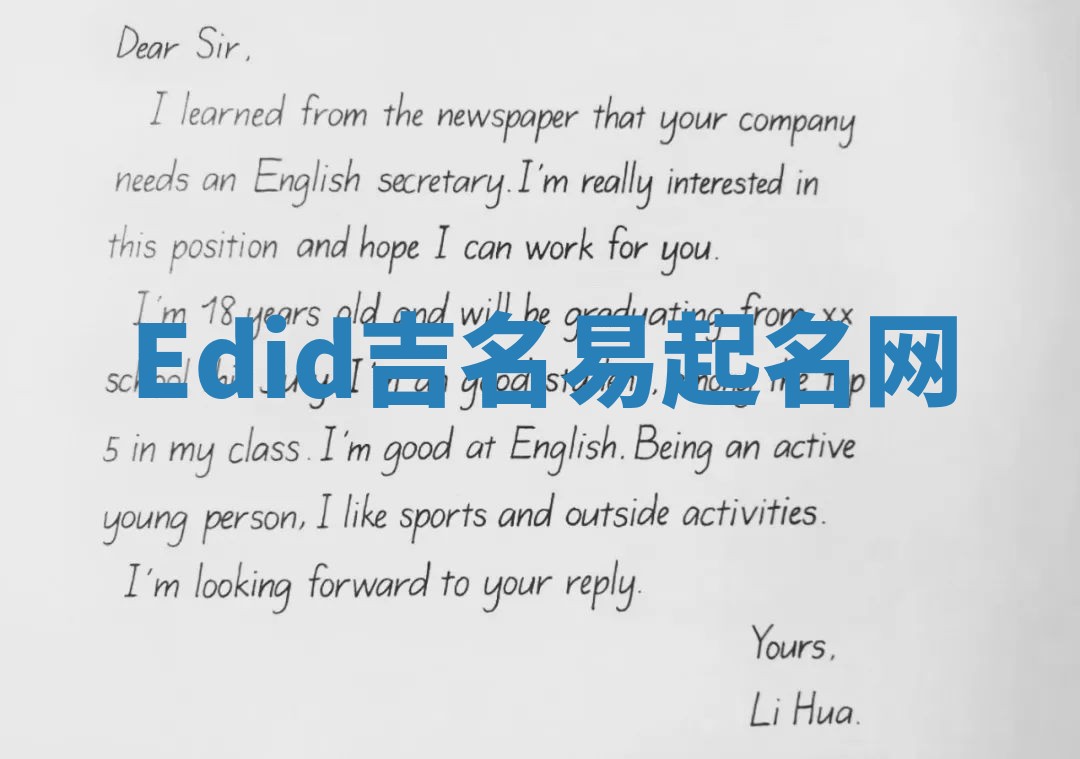 Dear Sir,
I learned from the newspaper that your company
needs an English secretary. I'm really interested in
this position and hope I can work for you.
I'm 18 years old and will be graduating from xx
Edid吉名易起名网
school this July. I'm an good student, among the top
5 in my class. I'm good at English. Being an active
young person, I like sports and outside activities.
I'm looking forward to your reply.
Yours,
Li Hua.